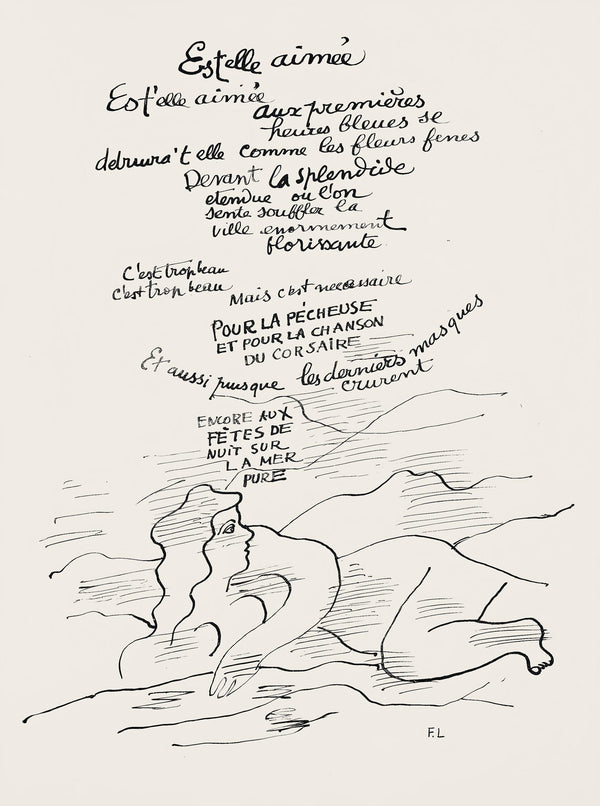 Est elle aimée
Est'elle aimée aux premières
heures bleues se
detruira't elle comme les fleurs fenes
Devant la splendide
etendue ou l'on
sente souffler la
ville enormement
florissante
C'est trop beau
C'est trop beau
Mais c'est necessaire
POUR LA PÉCHEUSE
ET POUR LA CHANSON
DU CORSAIRE
Et aussi puisque les derniers masques
crurent
ENCORE AUX
FÊTES DE
NUIT SUR
LA MER
PURE
F.L